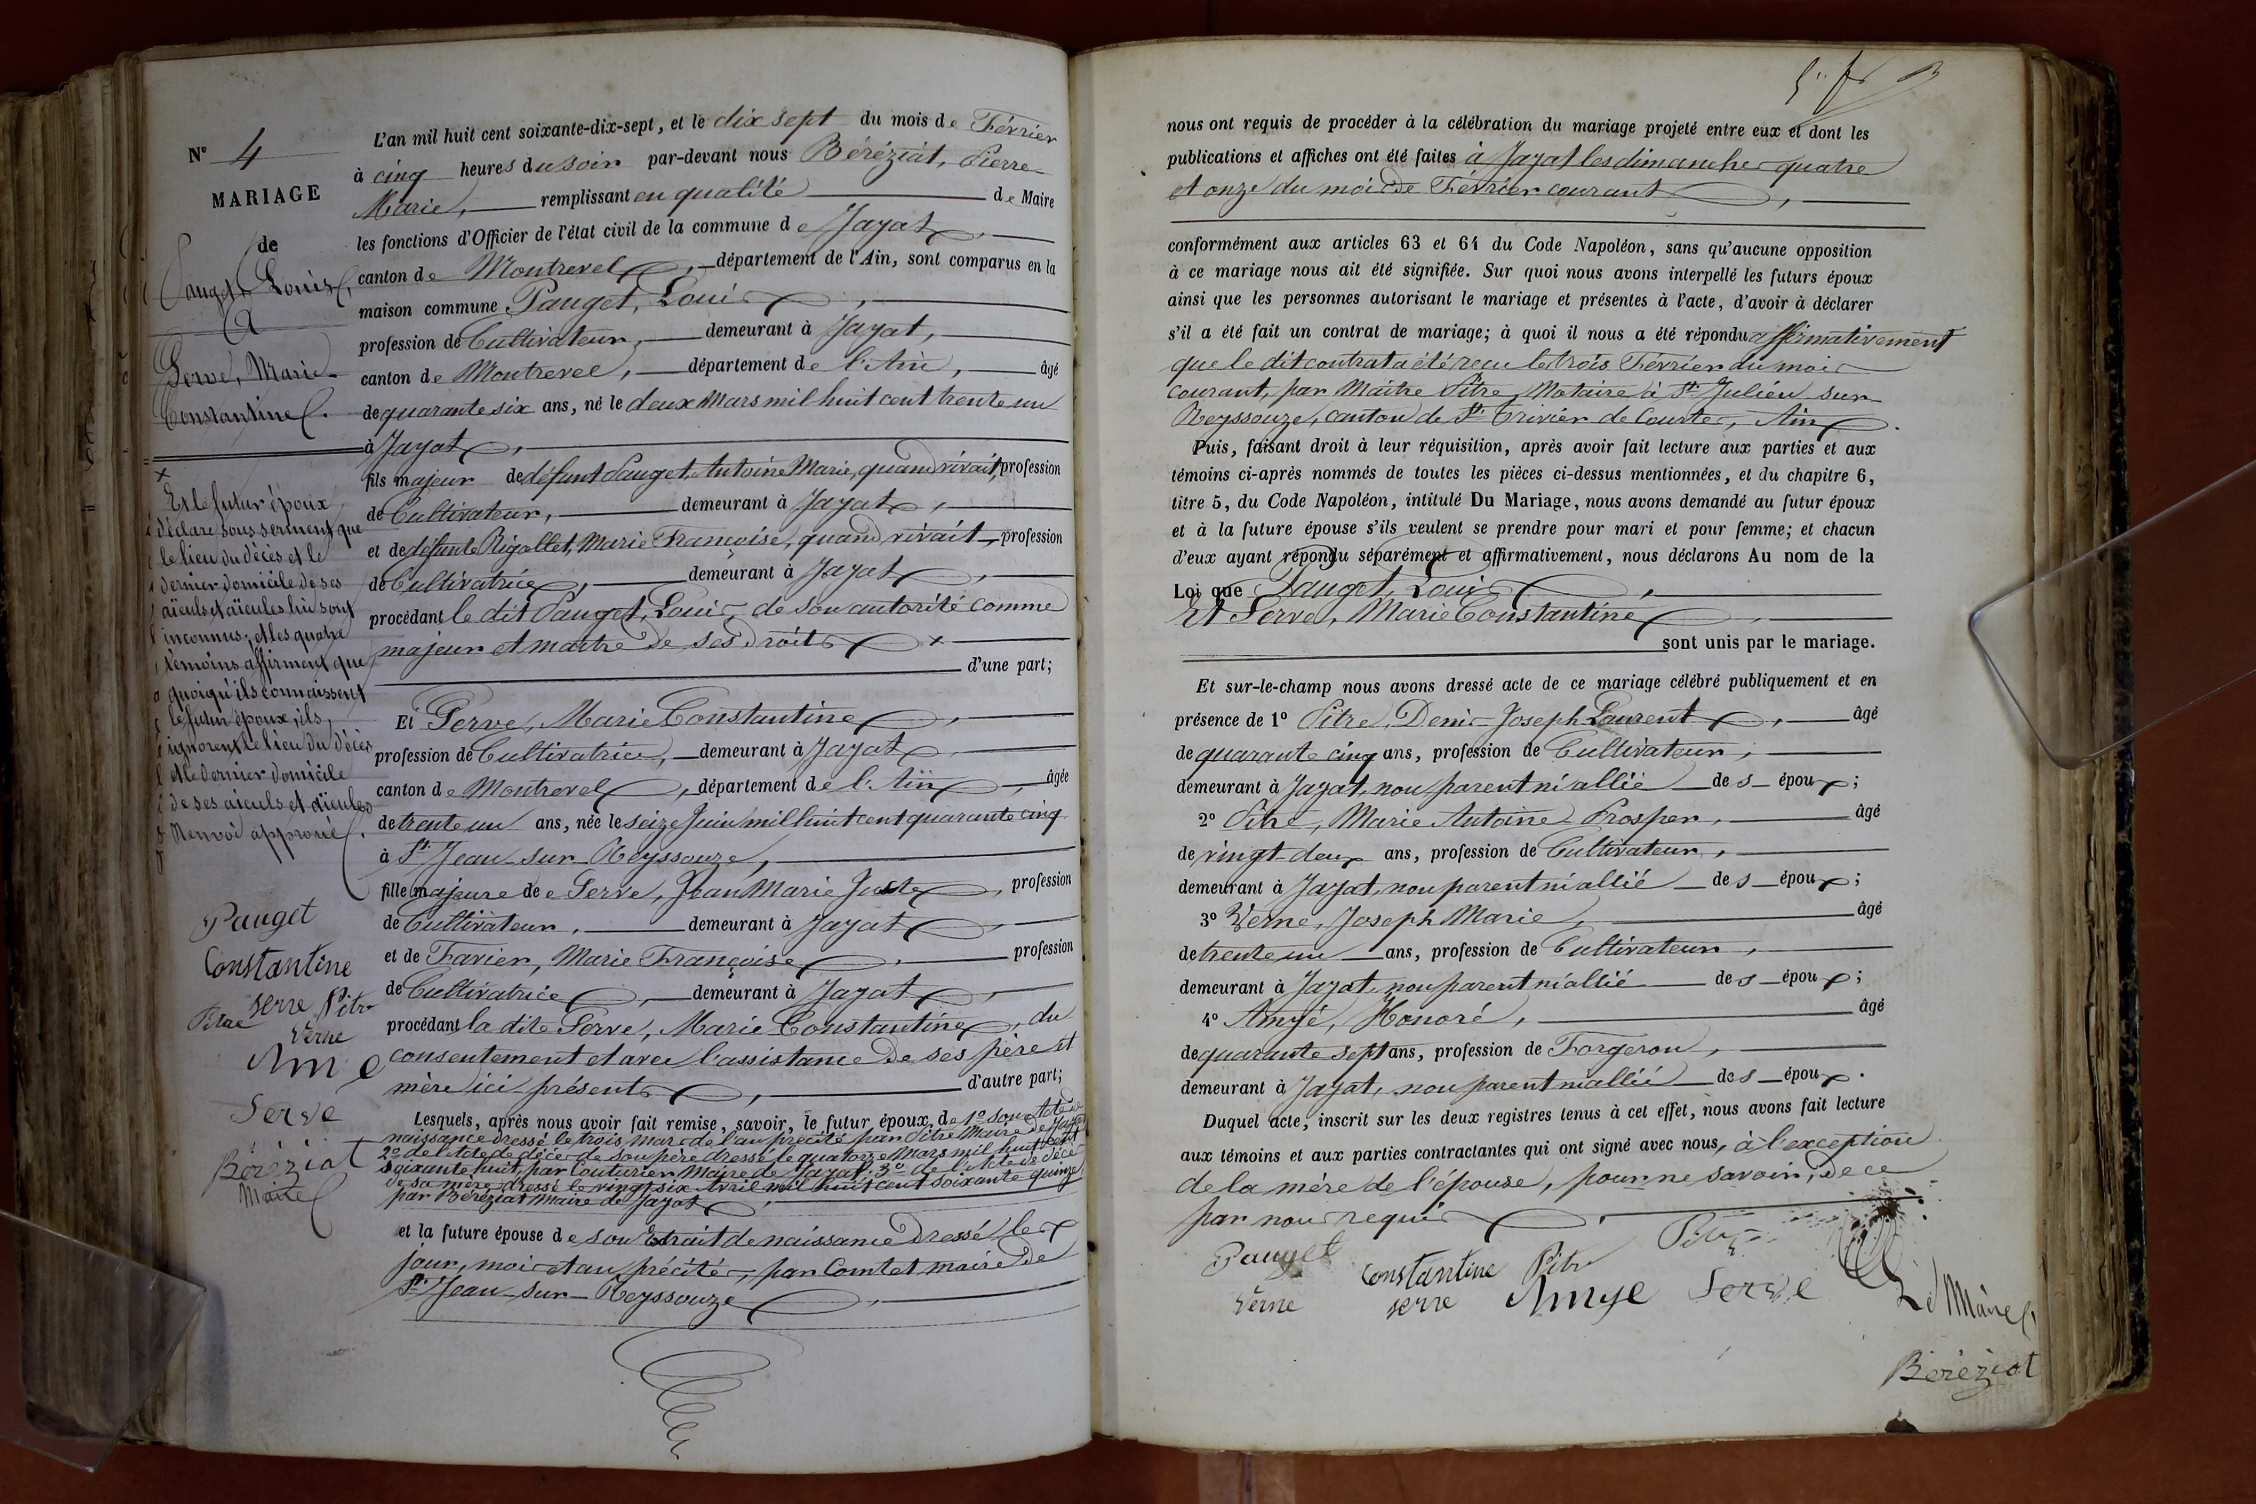 N° 4
MARIAGE
de
Pauget, Louis,
Et
Serve, Marie
Constantine.
L'an mil huit cent soixante-dix-sept, et le dix sept du mois de Février
à cinq heures du soir par-devant nous Béréziat, Pierre
Marie, remplissant en qualité de Maire
les fonctions d'Officier de l'état civil de la commune de Jayat,
canton de Montrevel, département de l'Ain, sont comparus en la
maison commune Pauget, Louis,
profession de Cultivateur, demeurant à Jayat,
canton de Montrevel, département de l'Ain, âgé
de quarante six ans, né le deux Mars mil huit cent trente un
à Jayat,
fils majeur de défunt Pauget, Antoine Marie, quand vivait, profession
de Cultivateur, demeurant à Jayat,
et de défunte Rigollet, Marie Françoise, quand vivait, profession
de Cultivatrice, demeurant à Jayat,
procédant le dit Pauget, Louis, de son autorité comme
majeur et maître de ses droits x
d'une part;
x
Et le futur époux
déclare sous serment que
le lieu du décès et le
dernier domicile de ses
aïeuls et aïeules lui sont
inconnus; et les quatre
témoins affirment que
quoiqu'ils connaissent
le futur époux, ils
ignorent le lieu du décès
et le dernier domicile
de ses aïeuls et aïeules
Renvoi approuvé.
Pauget
Constantine
serve Pitre
Pitre Verne
Amyé
Serve
Béréziat
Maire
Et Serve, Marie Constantine,
profession de Cultivatrice, demeurant à Jayat
canton de Montrevel, département de l'Ain, âgée
de trente un ans, née le seize Juin mil huit cent quarante cinq
à St Jean-sur-Reyssouze,
fille majeure de Serve, Jean Marie Juste, profession
de Cultivateur, demeurant à Jayat,
et de Favier, Marie Françoise, profession
de Cultivatrice, demeurant à Jayat,
procédant la dite Serve, Marie Constantine, du
consentement et avec l'assistance de ses père et
mère ici présents, d'autre part;
Lesquels, après nous avoir fait remise, savoir, le futur époux, de 1° son acte de
naissance dressé le trois mars de l'an précité par Pitre Maire de Jayat
2° de l'acte de décès de son père dressé le quatorze Mars mil huit cent
soixante huit, par Couturier Maire de Jayat. 3° de l'Acte de décès
de sa mère dressé le vingt six Avril mil huit cent soixante quinze
par Béréziat Maire de Jayat,
et la future épouse de son Extrait de naissance dressé les
jour, mois et an précités, par Comtet maire de
St Jean-sur-Reyssouze,
nous ont requis de procéder à la célébration du mariage projeté entre eux et dont les
publications et affiches ont été faites à Jayat les dimanches quatre
et onze du mois de Février courant,
conformément aux articles 63 et 64 du Code Napoléon, sans qu'aucune opposition
à ce mariage nous ait été signifiée. Sur quoi nous avons interpellé les futurs époux
ainsi que les personnes autorisant le mariage et présentes à l'acte, d'avoir à déclarer
s'il a été fait un contrat de mariage; à quoi il nous a été répondu affirmativement
que le dit contrat a été reçu le trois Février du mois
courant, par Maitre Pitre, Notaire à St Julien sur
Reyssouze, canton de St Trivier de Courtes, Ain.
Puis, faisant droit à leur réquisition, après avoir fait lecture aux parties et aux
témoins ci-après nommés de toutes les pièces ci-dessus mentionnées, et du chapitre 6,
titre 5, du Code Napoléon, intitulé Du Mariage, nous avons demandé au futur époux
et à la future épouse s'ils veulent se prendre pour mari et pour femme; et chacun
d'eux ayant répondu séparément et affirmativement, nous déclarons Au nom de la
Loi que Pauget, Louis,
Et Serve, Marie Constantine,
sont unis par le mariage.
Et sur-le-champ nous avons dressé acte de ce mariage célébré publiquement et en
présence de 1° Pitre, Denis-Joseph Laurent, âgé
de quarante cinq ans, profession de Cultivateur,
demeurant à Jayat, non parent ni allié des époux;
2° Pitre, Marie Antoine Prosper, âgé
de vingt-deux ans, profession de Cultivateur,
demeurant à Jayat, non parent ni allié des époux;
3° Verne, Joseph Marie, âgé
de trente un ans, profession de Cultivateur,
demeurant à Jayat, non parent ni allié des époux;
4° Amyé, Honoré, âgé
de quarante sept ans, profession de Forgeron,
demeurant à Jayat, non parent ni allié des époux.
Duquel acte, inscrit sur les deux registres tenus à cet effet, nous avons fait lecture
aux témoins et aux parties contractantes qui ont signé avec nous, à l'exception
de la mère de l'épouse, pour ne savoir, de ce
par nous requis.
Pauget Constantine Pitre Pitre
Verne serve Amyé Serve Le Maire
Béréziat